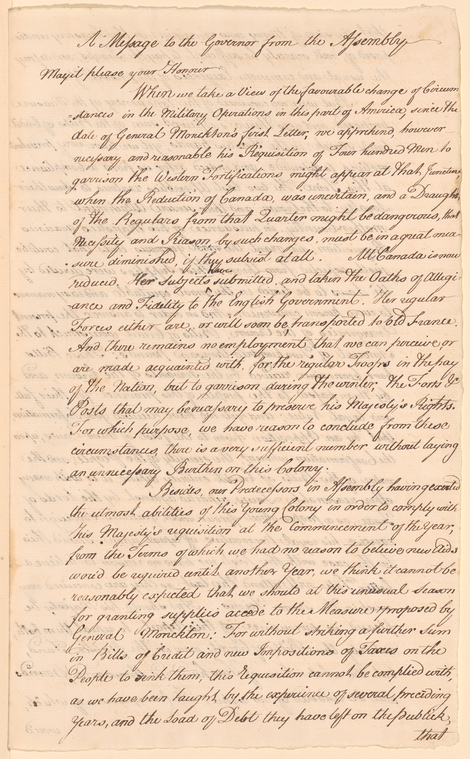 A Message to the Governor from the Assembly
May it please your Honour
When we take a View of the favourable change of Circum
stances in the Military Operations in this part of America, since the
date of General Monckton's first Letter, we apprehend, however
necessary and reasonable his Requisition of Four hundred Men to
garrison the Western Fortifications might appear at that Juncture
when the Reduction of Canada, was uncertain, and a Draught
of the Regulars from that Quarter might be dangerous, that
Necessity and Reason, by such changes, must be in a equal mea-
sure diminished, if they subsist at all. All Canada is now
reduced, Her Subjects have submitted, and taken the Oaths of Allegi-
ance and Fidelity to the English Government. Her regular
Forces either are, or will soon be transported to old France.
And there remains no employment that we can perceive or
are made acquainted with, for the regular Troops in the pay
of the Nation, but to garrison during the winter, the Forts &
Posts that may be necessary to preserve his Majesty's Rights.
For which purpose, we have reason to conclude from these
circumstances, there is a very sufficient number without laying
an unnecessary Burthen on this Colony.
Besides, our Predecessors in Assembly having exerted
the utmost abilities of this Young Colony in order to comply with
his Majesty's requisition at the Commencement of the Year,
from the Terms of which we had no reason to believe new Aids
wou'd be required until another Year, we think it cannot be
reasonably expected that we should at this unusual Season
for granting supplies accede to the Measure proposed by
General Monckton; For without striking a further Sum
in Bills of Credit and new Impositions of Taxes on the
People to sink them, this Requisition cannot be complied with,
as we have been taught by the experience of several preceding
Years, and the Load of Debt they have left on the publick,
that